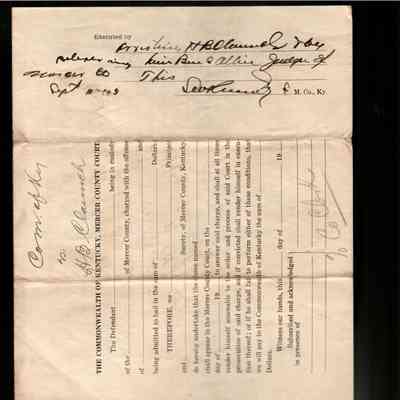 Executed by arresting H B Claunch & by
releasing him Ben C Allin Judge of
Mercer Co This
Sept
S. M. Co., Ky
Com of Ky
vs
H B Claunch
THE COMMONWEALTH OF KENTUCKY, MERCER COUNTY COURT
The Defendant being in custody
of the of Mercer County, charged with the offense
of
being admitted to bail in the sum of Dollars
THEREFORE, we Principal
and Surety, of Mercer County, Kentucky,
do hereby undertake that the above named
shall appear in the Mercer County Court, on the
day of 19 to answer said charge, and shall at all times
render himself amenable to the order and process of said Court in the
prosecution of said charge, and if convicted shall render himself in execu-
tion thereof; or if he shall fail to perform either of these conditions, that
we will pay to the Commonwealth of Kentucky the sum of
Dollars.
Witness our hands, this day of 19
Subscribed and acknowledged
in presence of